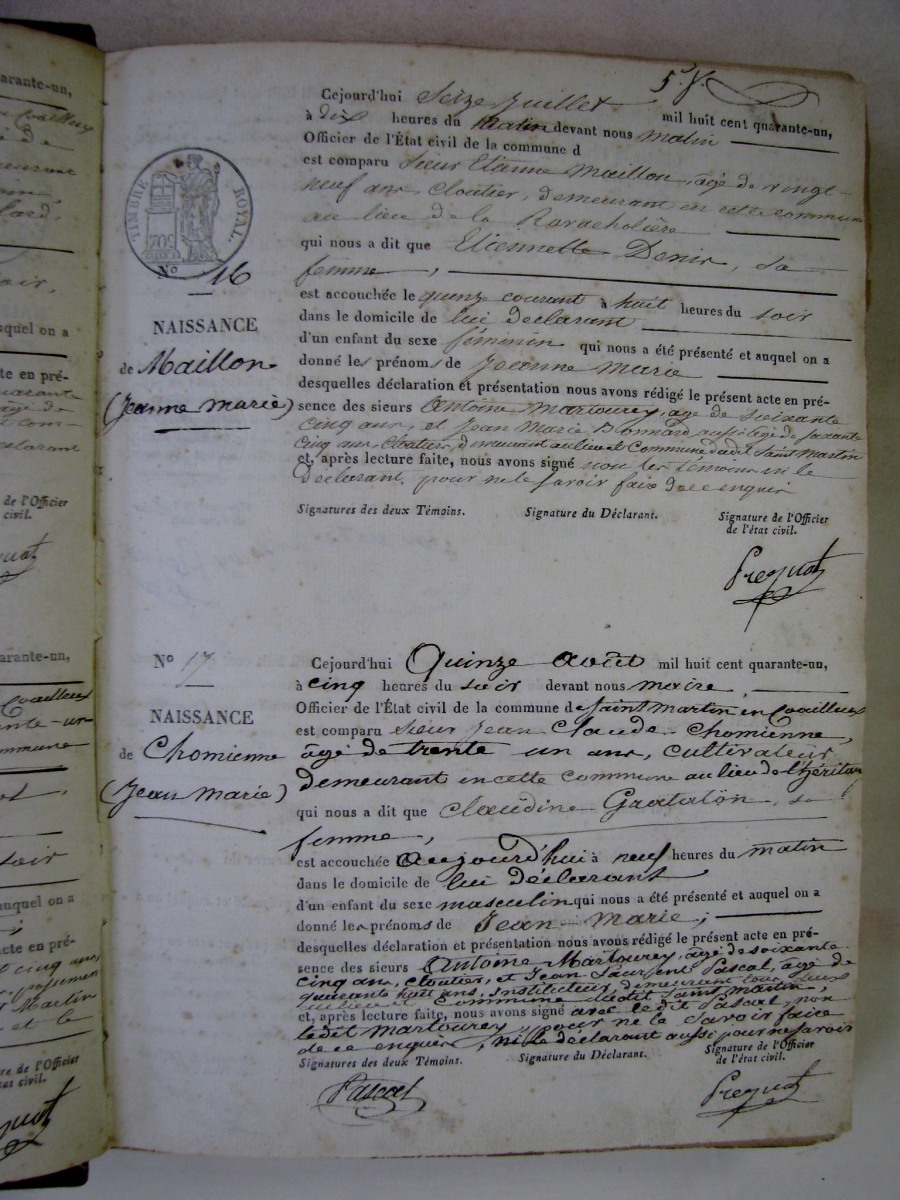 arante-un,
Coailleux
5e f.
TIMBRE ROYAL.
Cejourd'hui Seize Juillet mil huit cent quarante-un,
à dix heures du matin devant nous matin
Officier de l'État civil de la commune d
est comparu Sieur Etienne Maillon, âgé de vingt
neuf ans Cloutier, demeurant en cette commune
au lieu de la Ravacholière
qui nous a dit que Etiennette Denis, sa
femme,
est accouchée le quinze courant à huit heures du soir
dans le domicile de lui déclarant
d'un enfant du sexe féminin qui nous a été présenté et auquel on a
donné les prénoms de Jeanne Marie
desquelles déclaration et présentation nous avons rédigé le présent acte en pré-
sence des sieurs Antoine Martourey, âgé de soixante
cinq ans, et Jean Marie Bonnard aussi âgé de soixante
cinq ans, cloutiers, demeurant au lieu et Commune dudit Saint Martin
et, après lecture faite, nous avons signé non les témoins ni le
Déclarant, pour ne le savoir faire de ce enquis
Signatures des deux Témoins. Signature du Déclarant. Signature de l'Officier
de l'état civil.
No 16
NAISSANCE
de Maillon
(Jeanne marie)
No 17
NAISSANCE
de Chomienne
(Jean marie)
Cejourd'hui Quinze août mil huit cent quarante-un,
à cinq heures du soir devant nous maire,
Officier de l'État civil de la commune de Saint Martin en Coailleux
est comparu sieur Jean Claude Chomienne,
âgé de trente un ans, cultivateur
demeurant en cette commune au lieu de l'héritage
qui nous a dit que Claudine Gratalon, sa
femme,
est accouchée aujourd'hui à neuf heures du matin
dans le domicile de lui déclarant
d'un enfant du sexe masculin qui nous a été présenté et auquel on a
donné les prénoms de Jean Marie;
desquelles déclaration et présentation nous avons rédigé le présent acte en pré-
sence des sieurs Antoine Martourey, âgé de soixante
cinq ans, cloutier, et Jean Laurent Pascal, âgé de
quarante huit ans, instituteur, demeurant tous deux
Commune dudit Saint Martin,
et, après lecture faite, nous avons signé avec le dit Pascal, non
ledit Martourey, pour ne le savoir faire
de ce enquis, ni le déclarant aussi pour ne savoir
Signatures des deux Témoins. Signature du Déclarant. Signature de l'Officier
de l'état civil.
Pascal